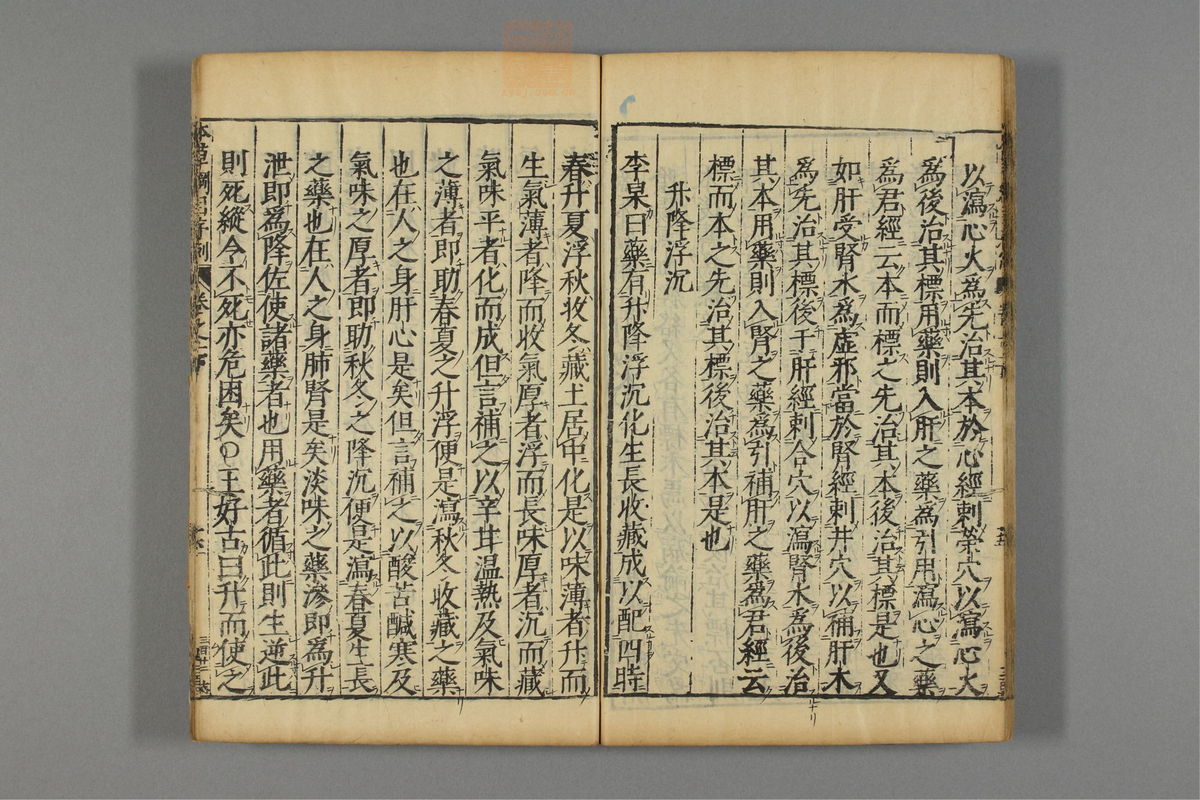 以瀉心火爲先治其本於心經刺滎穴以瀉心火
爲後治其標用藥則入肝之藥爲引用瀉心之藥
爲君經云本而標之先治其本後治其標是也又
如肝受腎水爲虛邪當於腎經刺井穴以補肝木
爲先治其標後于肝經刺合穴以瀉腎水爲後治
其本用藥則入腎之藥爲引補肝之藥爲君經云
標而本之先治其標後治其本是也
升降浮沉
李杲曰藥有升降浮沉化生長收藏成以配四時
春升夏浮秋收冬藏土居中化是以味薄者升而
生氣薄者降而收氣厚者浮而長味厚者沉而藏
氣味平者化而成但言補之以辛甘温熱及氣味
之薄者即助春夏之升浮便是瀉秋冬收藏之藥
也在人之身肝心是矣但言補之以酸苦鹹寒及
氣味之厚者即助秋冬之降沉便是瀉春夏生長
之藥也在人之身肺腎是矣淡味之藥滲即爲升
泄即爲降佐使諸藥者也用藥者循此則生逆此
則死縱令不死亦危困矣○王好古曰升而使之
本草綱目序例 卷之一下